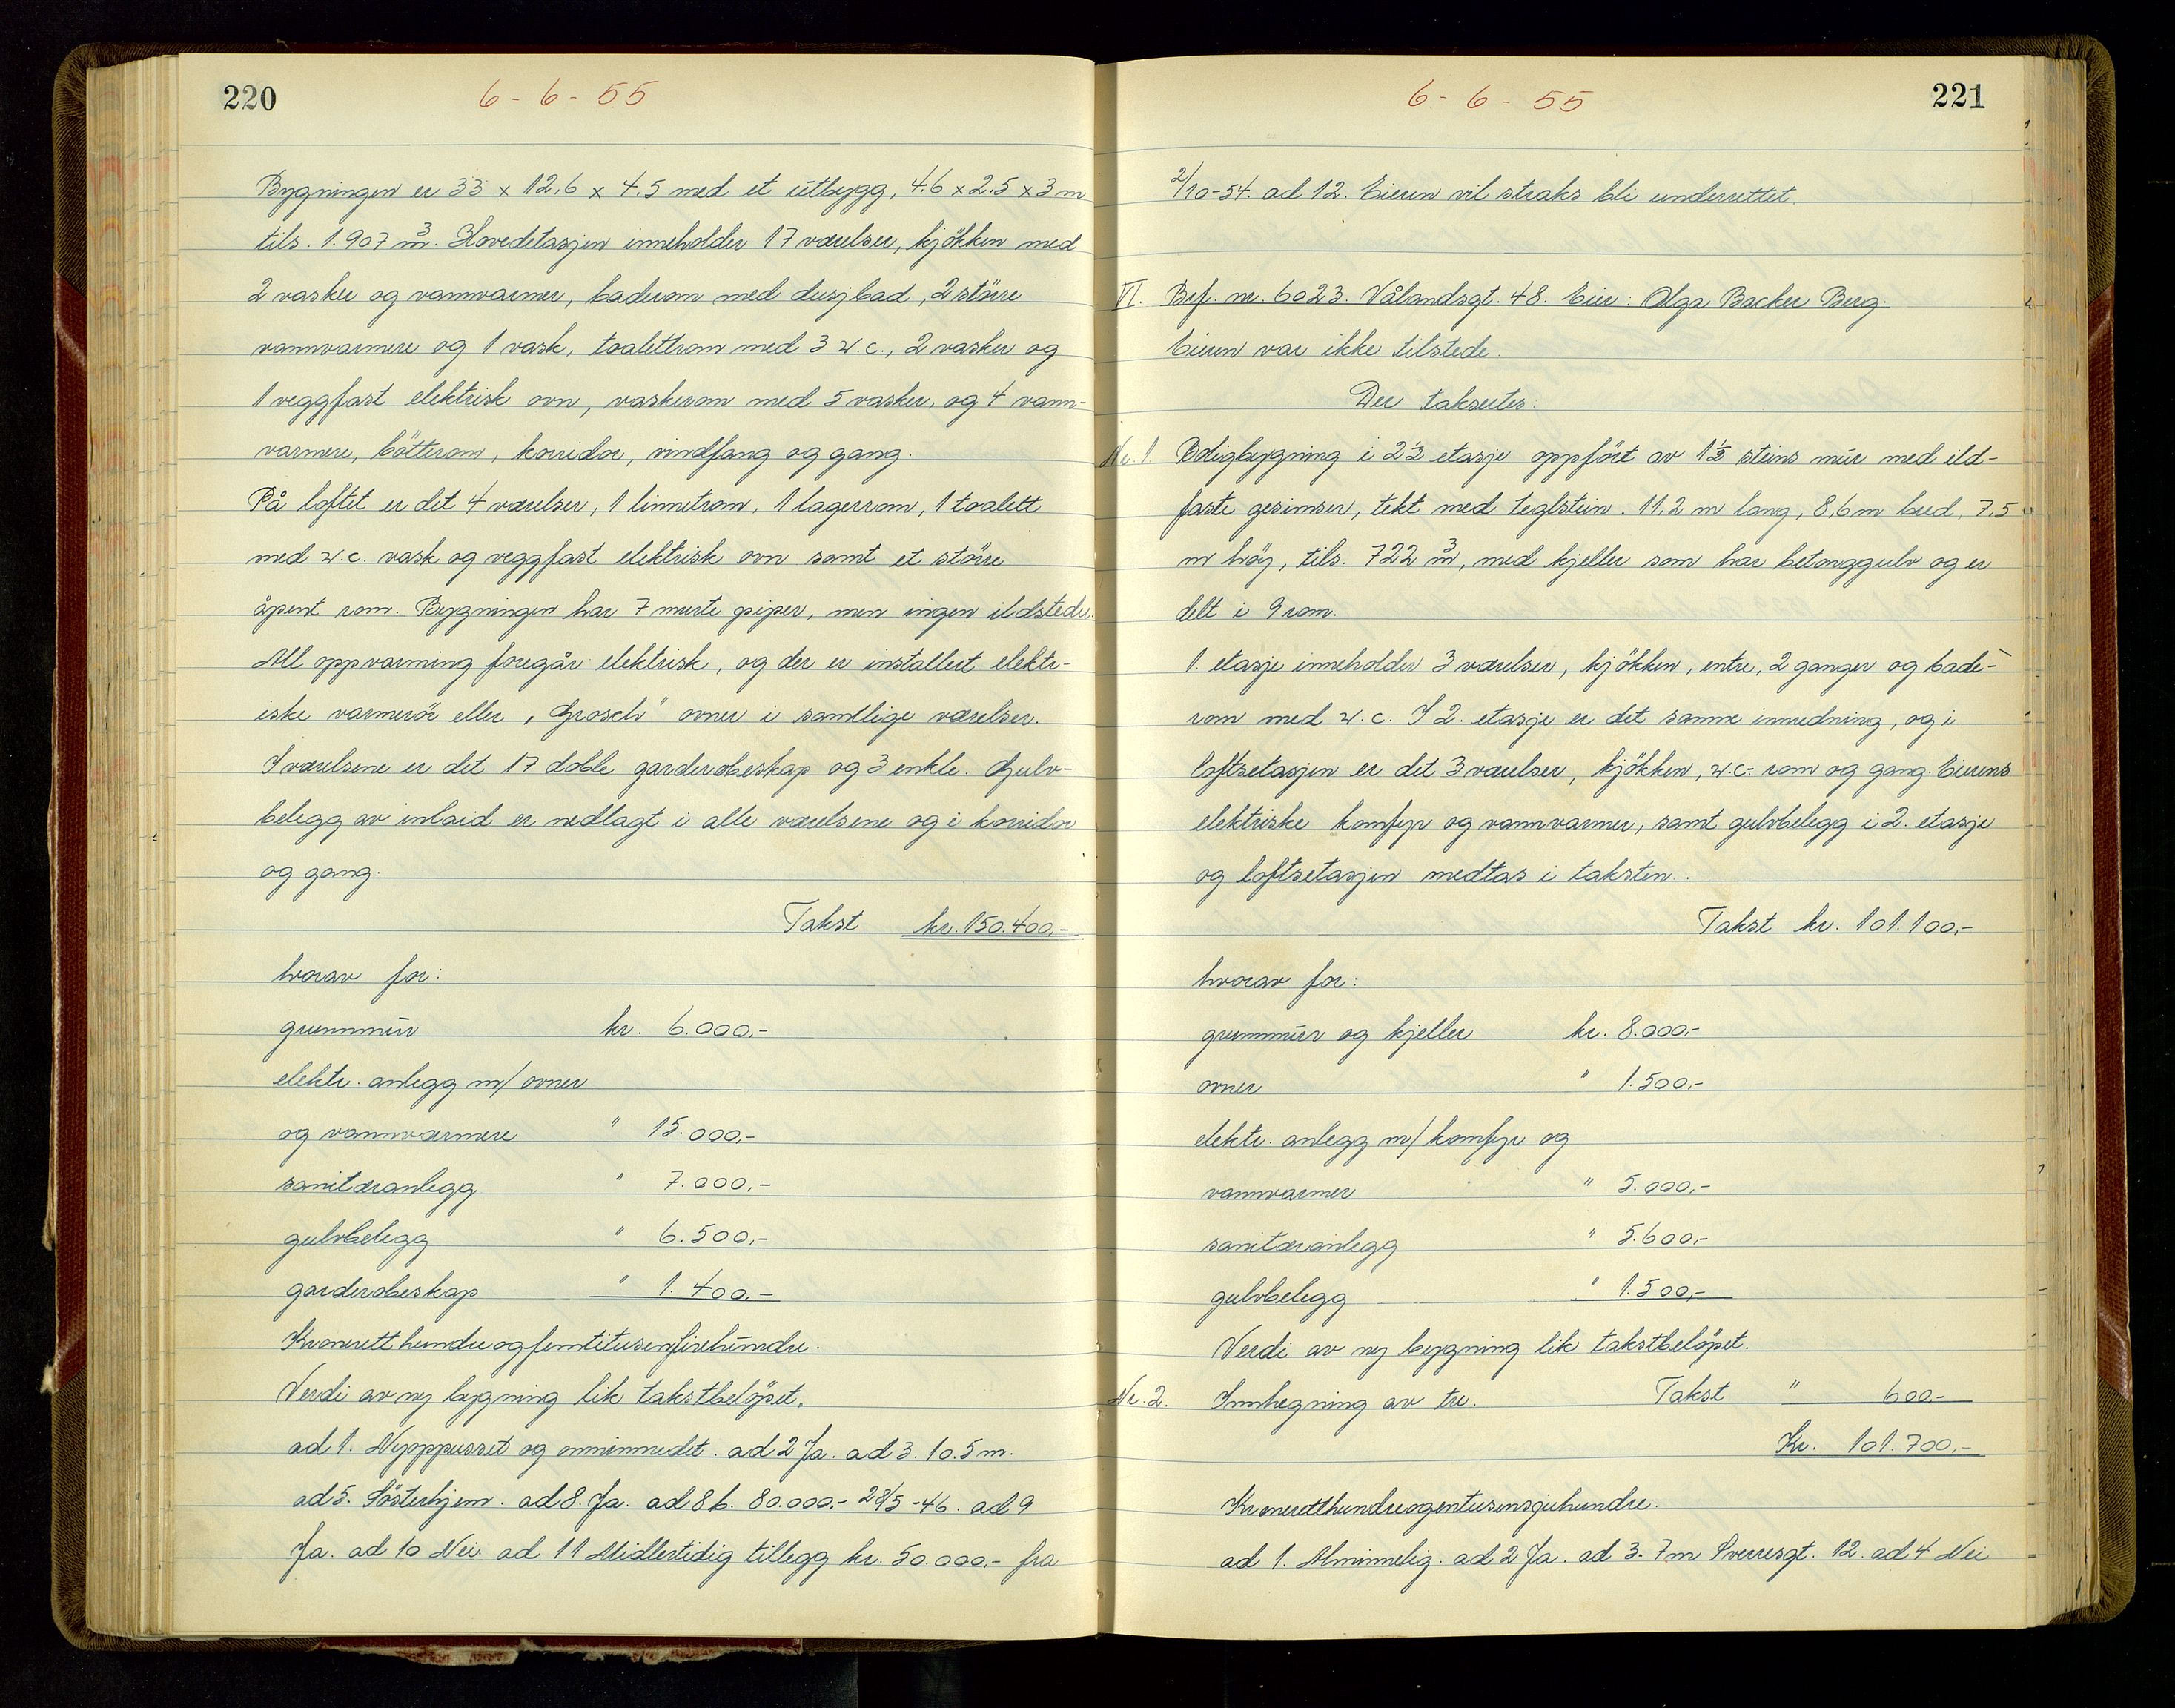 220
6-6-55
Bygningen er 33 x 12.6 x 4.5 med et utbygg, 4.6 x 2.5 x 3 m
tils. 1.907 m³. Hovedetasjen inneholder 17 værelser, kjökken med
2 vasker og vannvarmer, baderom med dusjbad, 2 större
vannvarmere og 1 vask, toalettrom med 3 w.c., 2 vasker og
1 veggfast elektrisk ovn, vaskerom med 5 vasker, og 4 vann-
varmere, bötterom, korridor, vindfang og gang.
På loftet er det 4 værelser, 1 linnetrom, 1 lagerrom, 1 toalett
med w.c. vask og veggfast elektrisk ovn samt et större
åpent rom. Bygningen har 7 murte piper, men ingen ildsteder.
All oppvarming foregår elektrisk, og der er installert elektr-
iske varmerör eller "Grosch" ovner i samtlige værelser.
I værelsene er det 17 doble garderobeskap og 3 enkle. Gulv-
belegg av inlaid er nedlagt i alle værelsene og i korridor
og gang.
Takst kr. 150.400.-
hvorav for:
grunnmur kr. 6.000,-
elektr. anlegg m/ ovner
og vannvarmere " 15.000,-
sanitæranlegg " 7.000,-
gulvbelegg " 6.500,-
garderobeskap " 1.400.-
Kroneretthundreogfemtitusenfirehundre.
Verdi av ny bygning lik takstbelöpet.
ad 1. Nyoppusset og ominnredet. ad 2 Ja. ad 3. 10.5 m.
ad 5. Sösterhjem. ad 8. Ja. ad 8 b. 80.000.- 28/5-46. ad 9
Ja. ad 10 Nei. ad 11 Midlertidig tillegg kr. 50.000.- fra
6-6-55
221
2/10-54. ad 12. Eieren vil straks bli underrettet.
VI. Bef. nr. 6023. Vålandsgt. 48. Eier: Olga Backer Berg.
Eieren var ikke tilstede.
Der taksertes:
Nr. 1 Boligbygning i 2½ etasje oppfört av 1½ steins mur med ild-
faste gesimser, tekt med teglstein. 11.2 m lang, 8,6 m bred, 7.5
m höy, tils. 722 m³, med kjeller som har betonggulv og er
delt i 9 rom.
1. etasje inneholder 3 værelser, kjökken, entre, 2 ganger og bade-
rom med w.c. I 2. etasje er det samme innredning, og i
loftsetasjen er det 3 værelser, kjökken, w.c.-rom og gang. Eierens
elektriske komfyr og vannvarmer, samt gulvbelegg i 2. etasje
og loftsetasjen medtas i taksten.
Takst kr. 101.100,-
hvorav for:
grunnmur og kjeller kr. 8.000.-
ovner " 1.500.-
elektr. anlegg m/ komfyr og
vannvarmer " 5.000,-
sanitæranlegg " 5.600.-
gulvbelegg " 1.500,-
Verdi av ny bygning lik takstbelöpet.
Nr. 2. Innhegning av tre. Takst " 600.-
Kr. 101.700,-
Kroneretthundreogentusensjuhundre.
ad 1. Alminnelig. ad 2 Ja. ad 3. 7 m Sverresgt. 12. ad 4 Nei